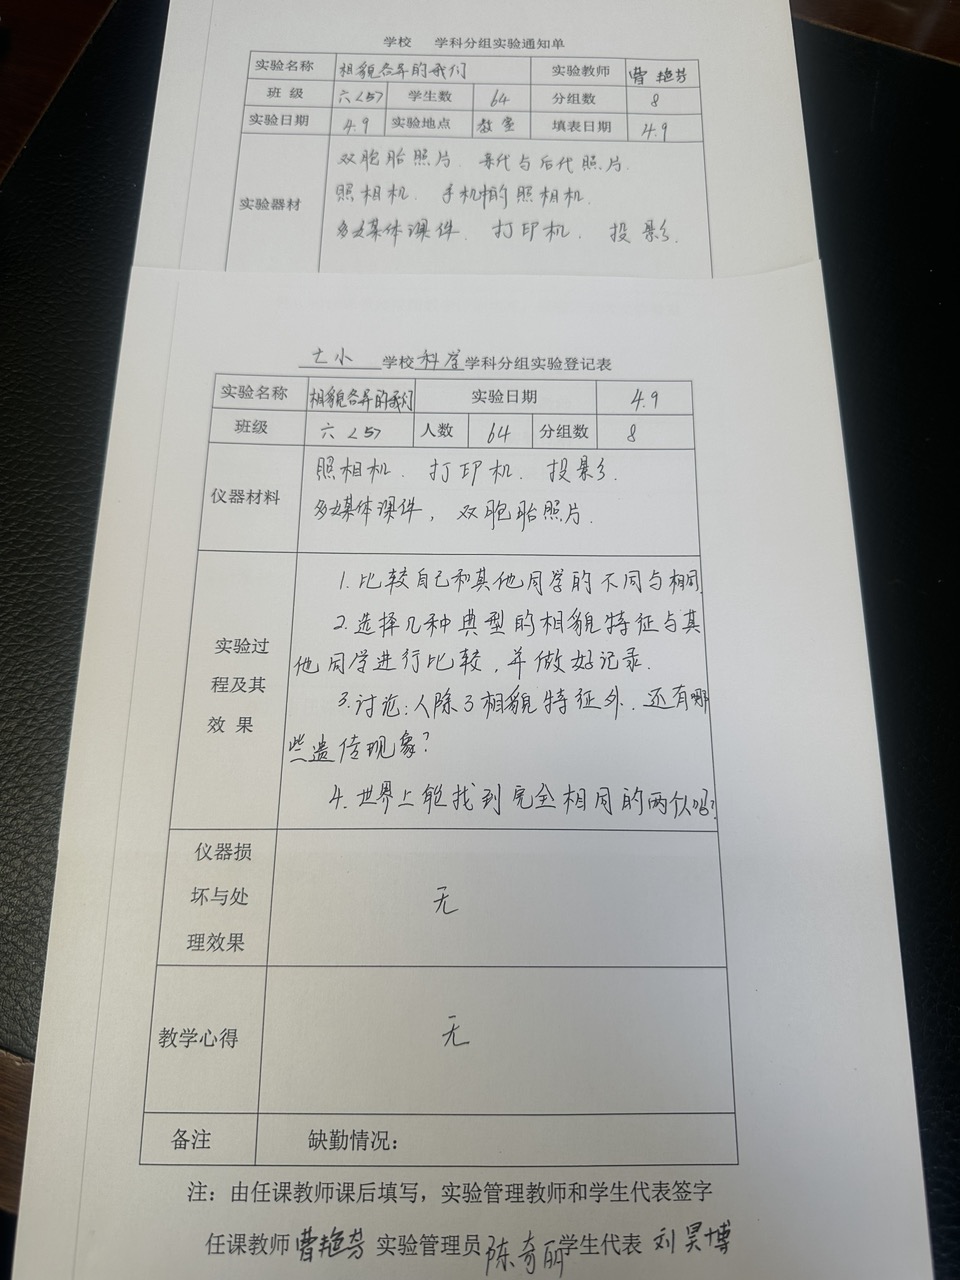 学校 学科分组实验通知单
实验名称 相貌各异的我们 实验教师 曹艳芬
班 级 六<5> 学生数 64 分组数 8
实验日期 4.9 实验地点 教室 填表日期 4.9
实验器材
双胞胎照片. 亲代与后代照片.
照相机. 手机中的照相机.
多媒体课件. 打印机. 投影.
七小 学校科学学科分组实验登记表
实验名称 相貌各异的我们 实验日期 4.9
班级 六<5> 人数 64 分组数 8
仪器材料
照相机. 打印机. 投影.
多媒体课件, 双胞胎照片.
实验过
程及其
效 果
1. 比较自己和其他同学的不同与相同.
2. 选择几种典型的相貌特征与其
他同学进行比较, 并做好记录.
3. 讨论:人除了相貌特征外. 还有哪
些遗传现象?
4. 世界上能找到完全相同的两个人吗?
仪器损
坏与处
理效果
无
教学心得 无
备注 缺勤情况:
注: 由任课教师课后填写,实验管理教师和学生代表签字
任课教师 曹艳芬 实验管理员 陈奇丽 学生代表 刘昊博